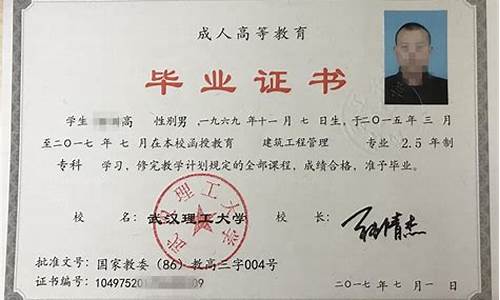 成人高等教育
毕业证书
学生 高 性别男,一九六九年十一月七日生,于二〇一五年三月
至二〇一七年七月在本校函授教育 建筑工程管理 专业 2.5年制
专科 学习,修完教学计划规定的全部课程,成绩合格,准予毕业。
校 名:武汉理工大学 校 长:
武汉理工大学
批准文号:国家教委(86)教高三字004号
证书编号:104975201 09 二〇一七年七月一日